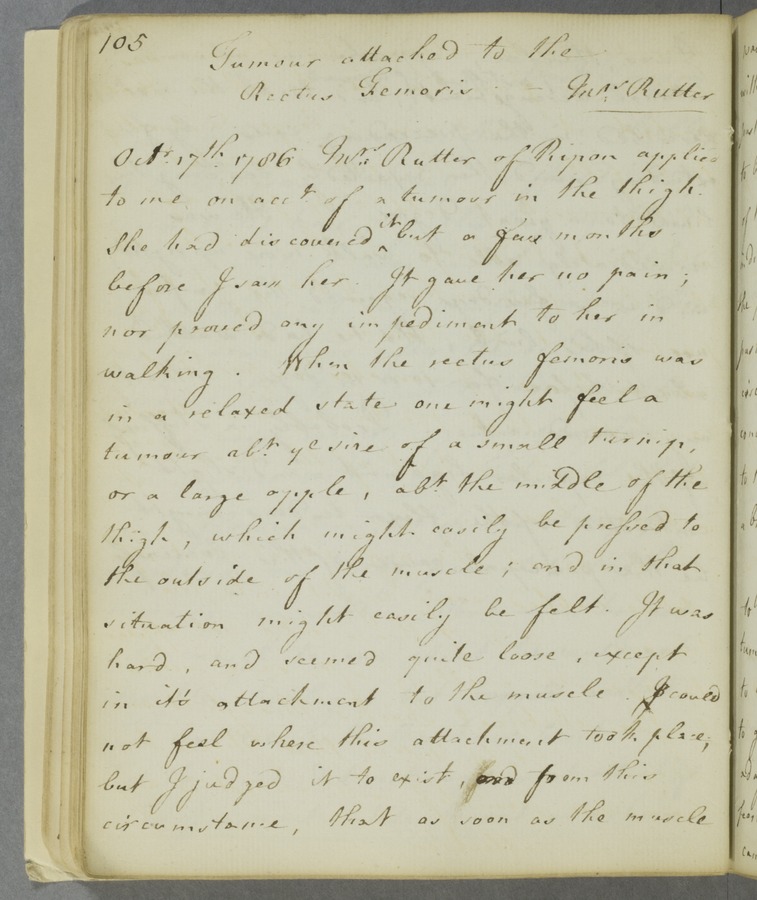 105
Tumour attached to the
Rectus Femoris - Mrs Rutter
Octr. 17th. 1786 Mrs. Rutter of Ripon applied
to me on acct of a tumour in the thigh.
She had discovered it but a few months
before I saw her. It gave her no pain;
nor proved any impediment to her in
walking. When the rectus femoris was
in a relaxed state one might feel a
tumour abt. ye size of a small turnip,
or a large apple, abt. the middle of the
thigh, which might easily be pressed to
the outside of the muscle; and in that
situation might easily be felt. It was
hard, and seemed quite loose, except
in it's attachment to the muscle. I could
not feel where this attachment took place;
but I judged it to exist, from this
circumstance, that as soon as the muscle